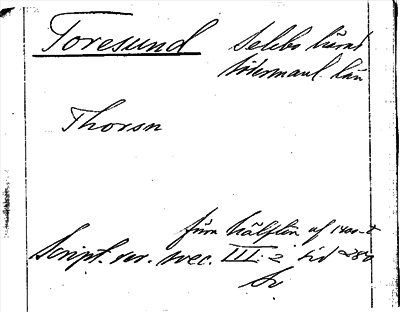 Toresund Selebo härad
Södermanl. län
Thorsn
förra hälften af 1400-t
Script. rer. svec. III: 2 sid 280